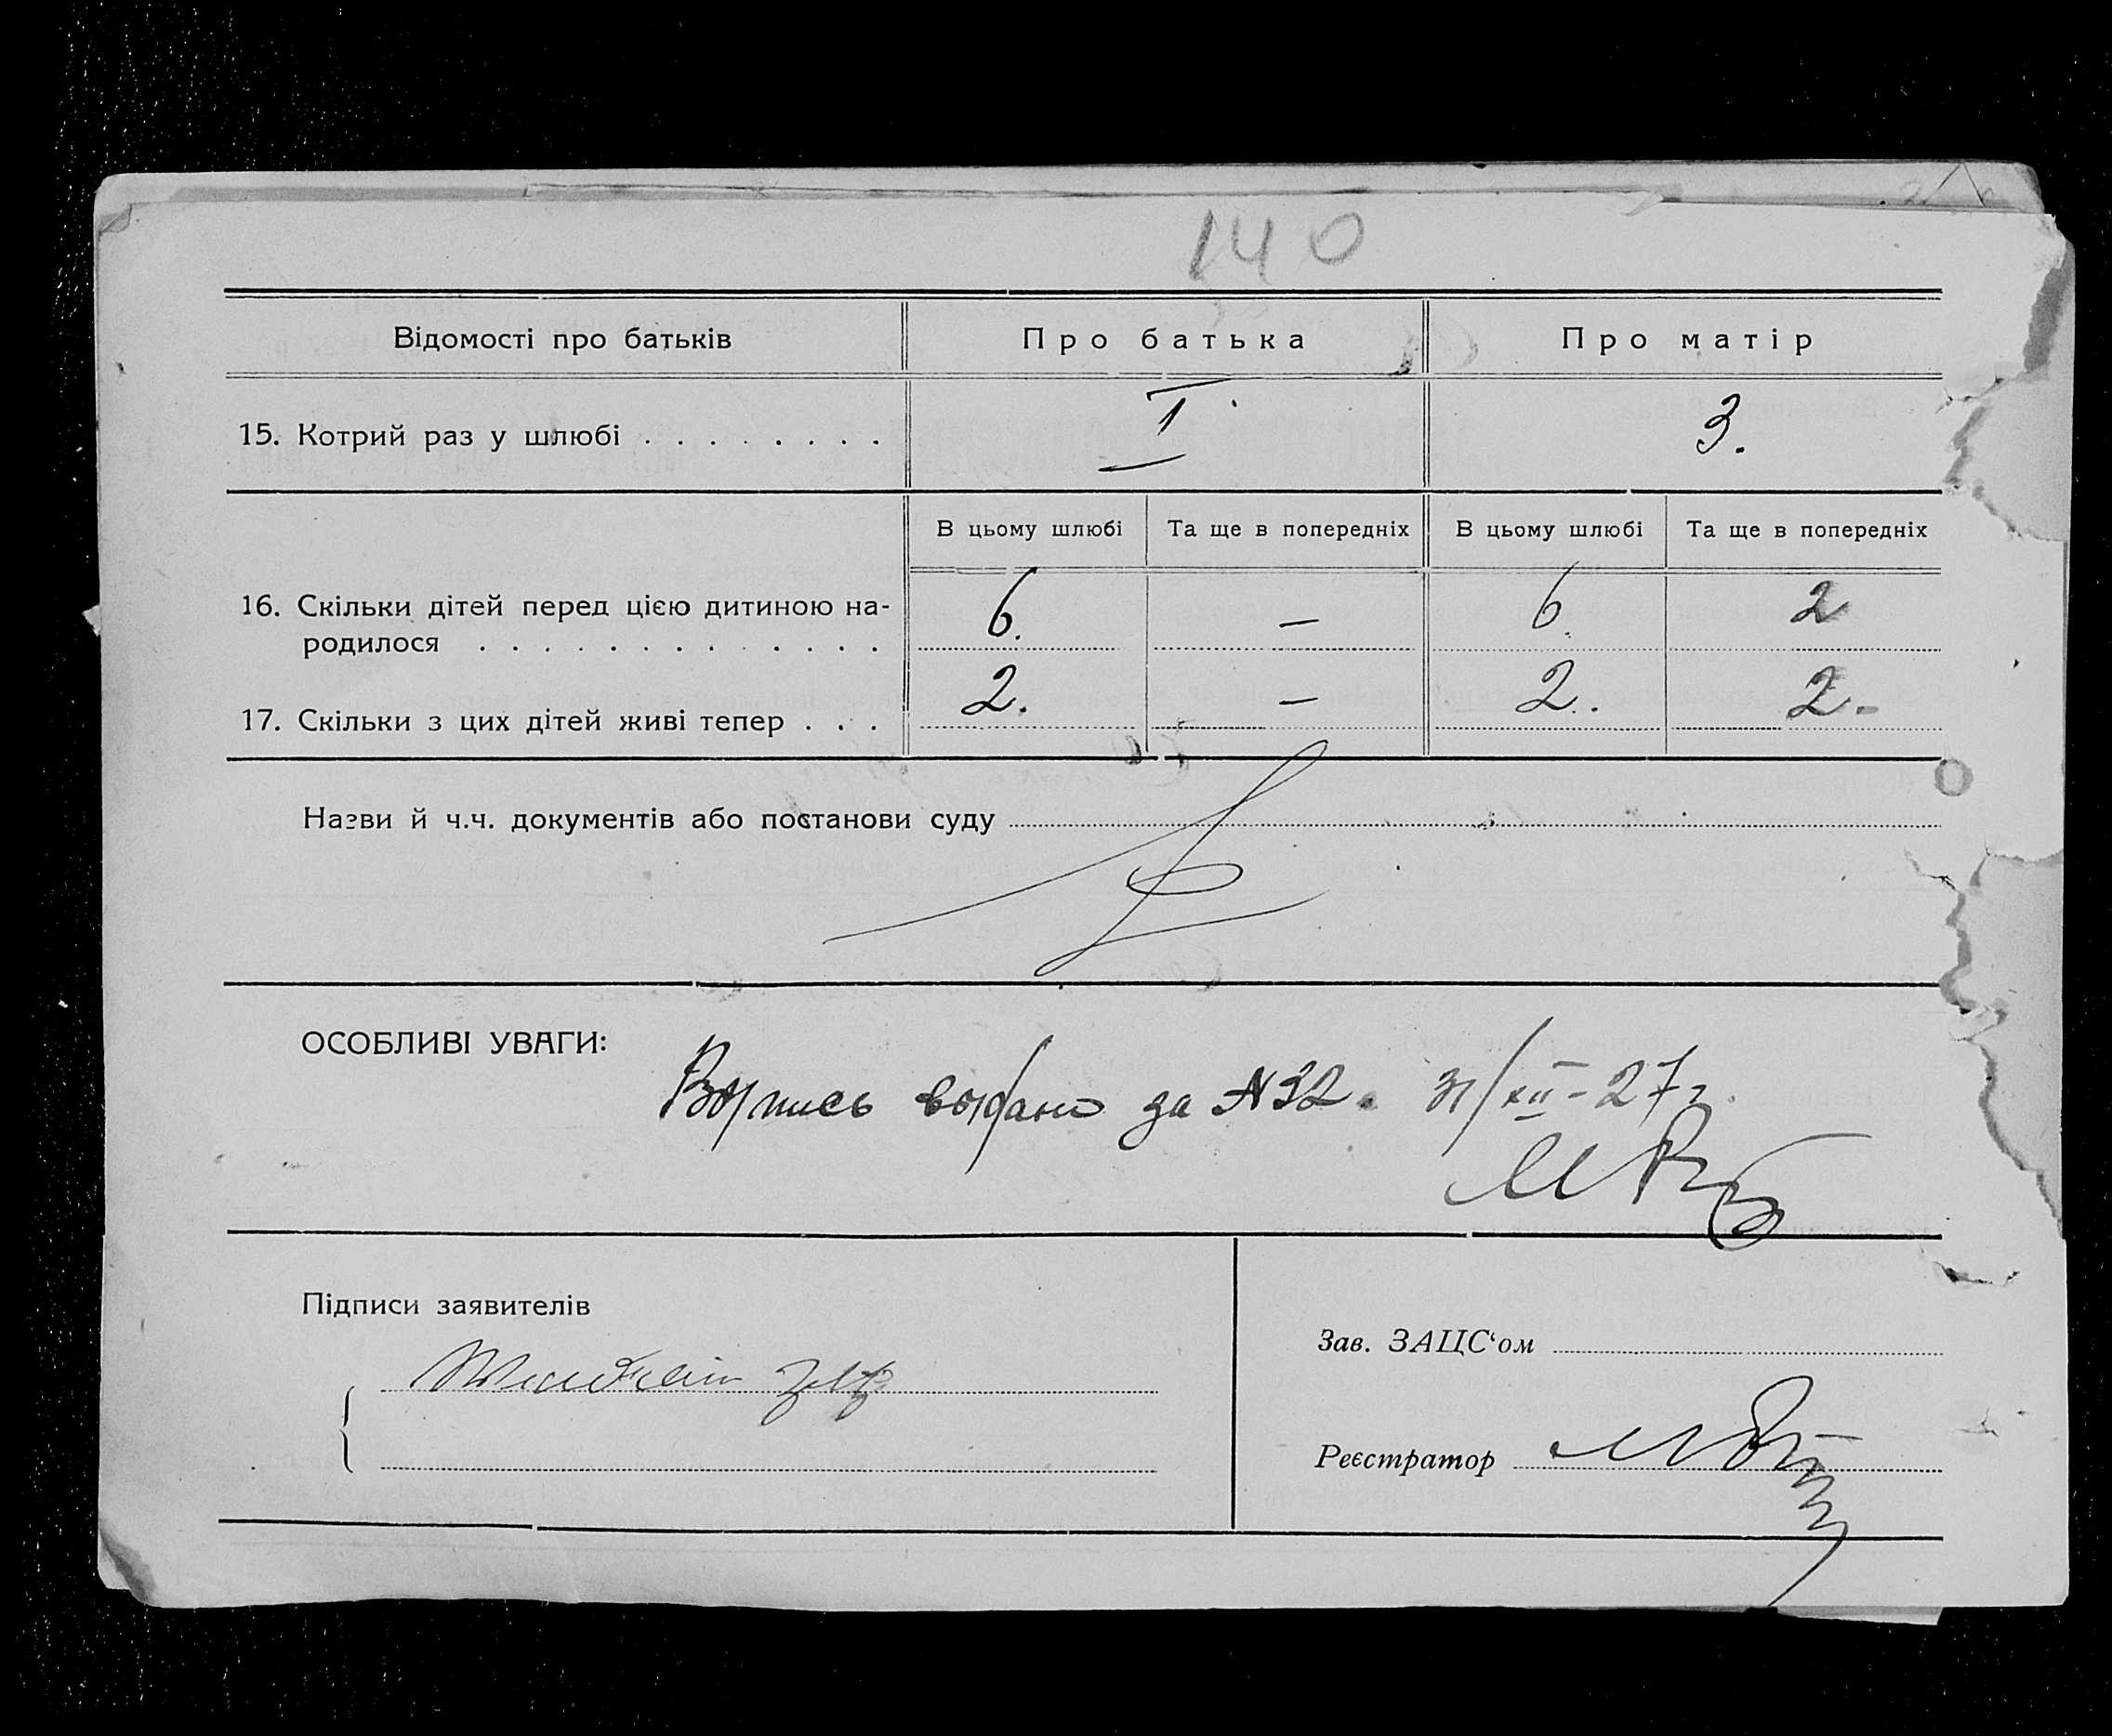 140
Відомості про батьків Про батька Про матір
15. Котрий раз у шлюбі . . . . . . . . I 3.
В цьому шлюбі Та ще в попередніх В цьому шлюбі Та ще в попередніх
16. Скільки дітей перед цією дитиною на-
родилося . . . . . . . . . . . . . 6. — 6. 2
17. Скільки з цих дітей живі тепер . . . 2. — 2. 2.
Назви й ч.ч. документів або постанови суду
ОСОБЛИВІ УВАГИ:
выдано за N 32. 31/XII-27г.
Підписи заявителів
Зав. ЗАЦС‘ом
Реєстратор